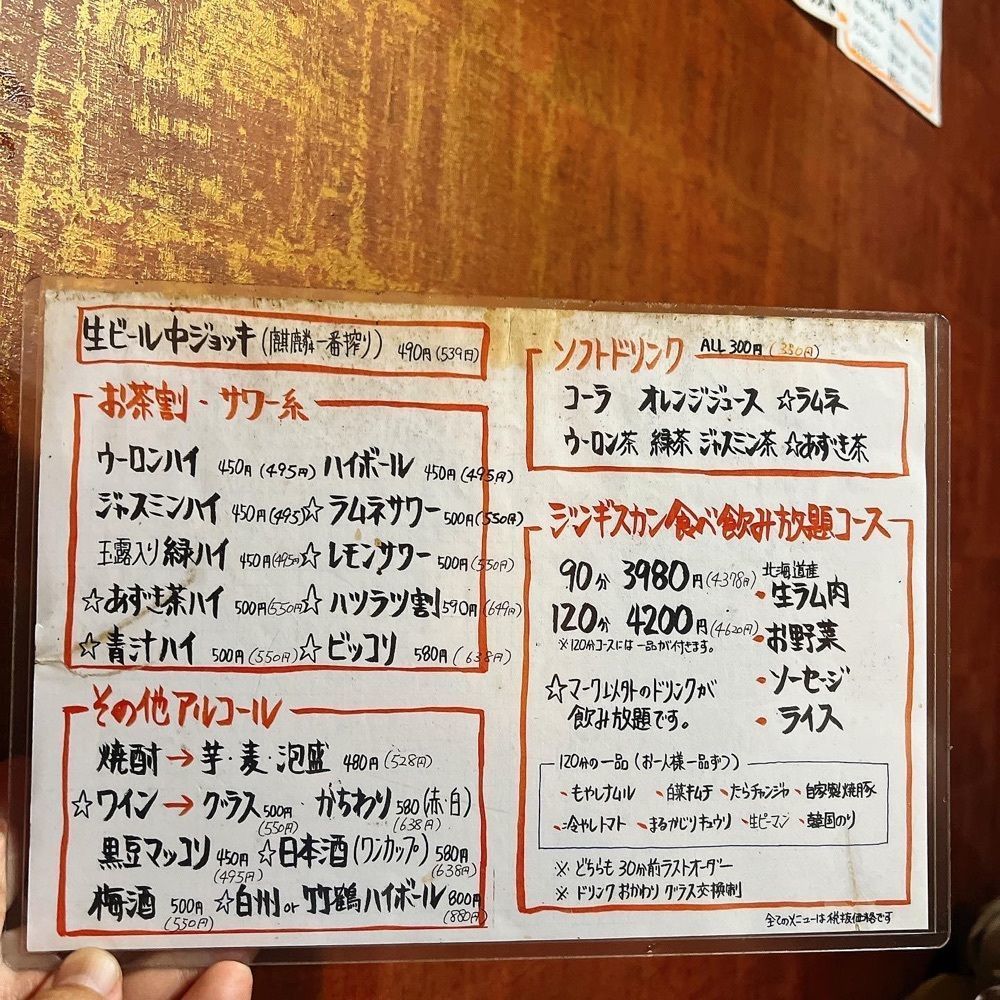 生ビール中ジョッキ(麒麟一番搾り) 490円(539円)
お茶割・サワー系
ウーロンハイ 450円(495円) ハイボール 450円(495円)
ジャスミンハイ 450円(495) ☆ラムネサワー 500円(550円)
玉露入り緑ハイ 450円(495円) ☆レモンサワー 500円(550円)
☆あずき茶ハイ 500円(550円) ☆ハツラツ割 590円(649円)
☆青汁ハイ 500円(550円) ☆ビッコリ 580円(638円)
その他アルコール
焼酎→芋・麦・泡盛 480円(528円)
☆ワイン→グラス 500円(550円) かちわり 580(赤・白)(638円)
黒豆マッコリ 450円(495円) ☆日本酒(ワンカップ) 580円(638円)
梅酒 500円(550円) ☆白州or竹鶴ハイボール 800円(880円)
ソフトドリンク ALL 300円(330円)
コーラ オレンジジュース ☆ラムネ
ウーロン茶 緑茶 ジャスミン茶 ☆あずき茶
ジンギスカン食べ飲み放題コース
90分 3980円(4378円)
120分 4200円(4620円)
※120分コースには一品が付きます。
☆マーク以外のドリンクが
飲み放題です。
北海道産
・生ラム肉
・お野菜
・ソーセージ
・ライス
120分の一品(お一人様一品ずつ)
・もやしナムル ・白菜キムチ ・たらチャンジャ ・自家製焼豚
・冷やしトマト ・まるかじりキュウリ ・生ピーマン ・韓国のり
※どちらも30分前ラストオーダー
※ドリンクおかわりグラス交換制
全てのメニューは税抜価格です